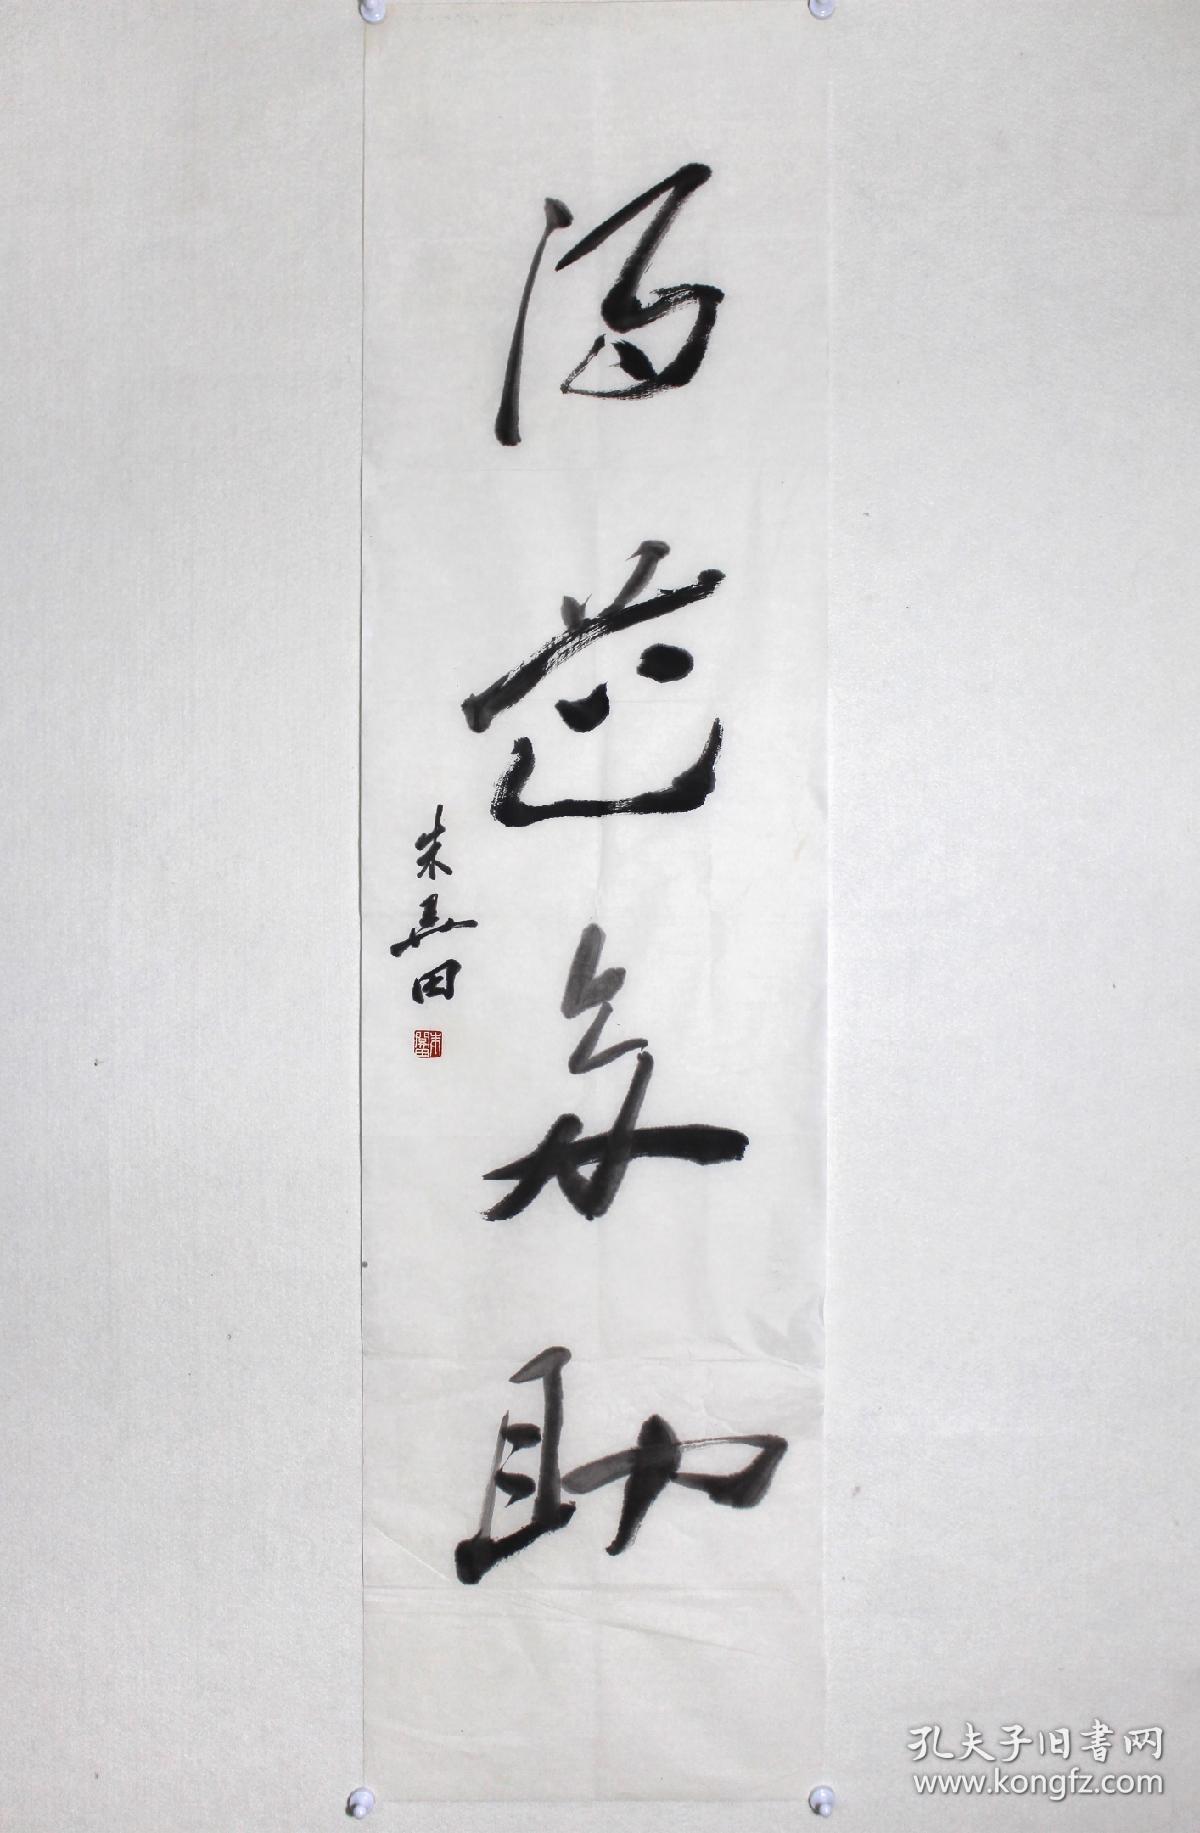 得道多助
朱关田
朱關田
孔夫子旧书网
www.kongfz.com